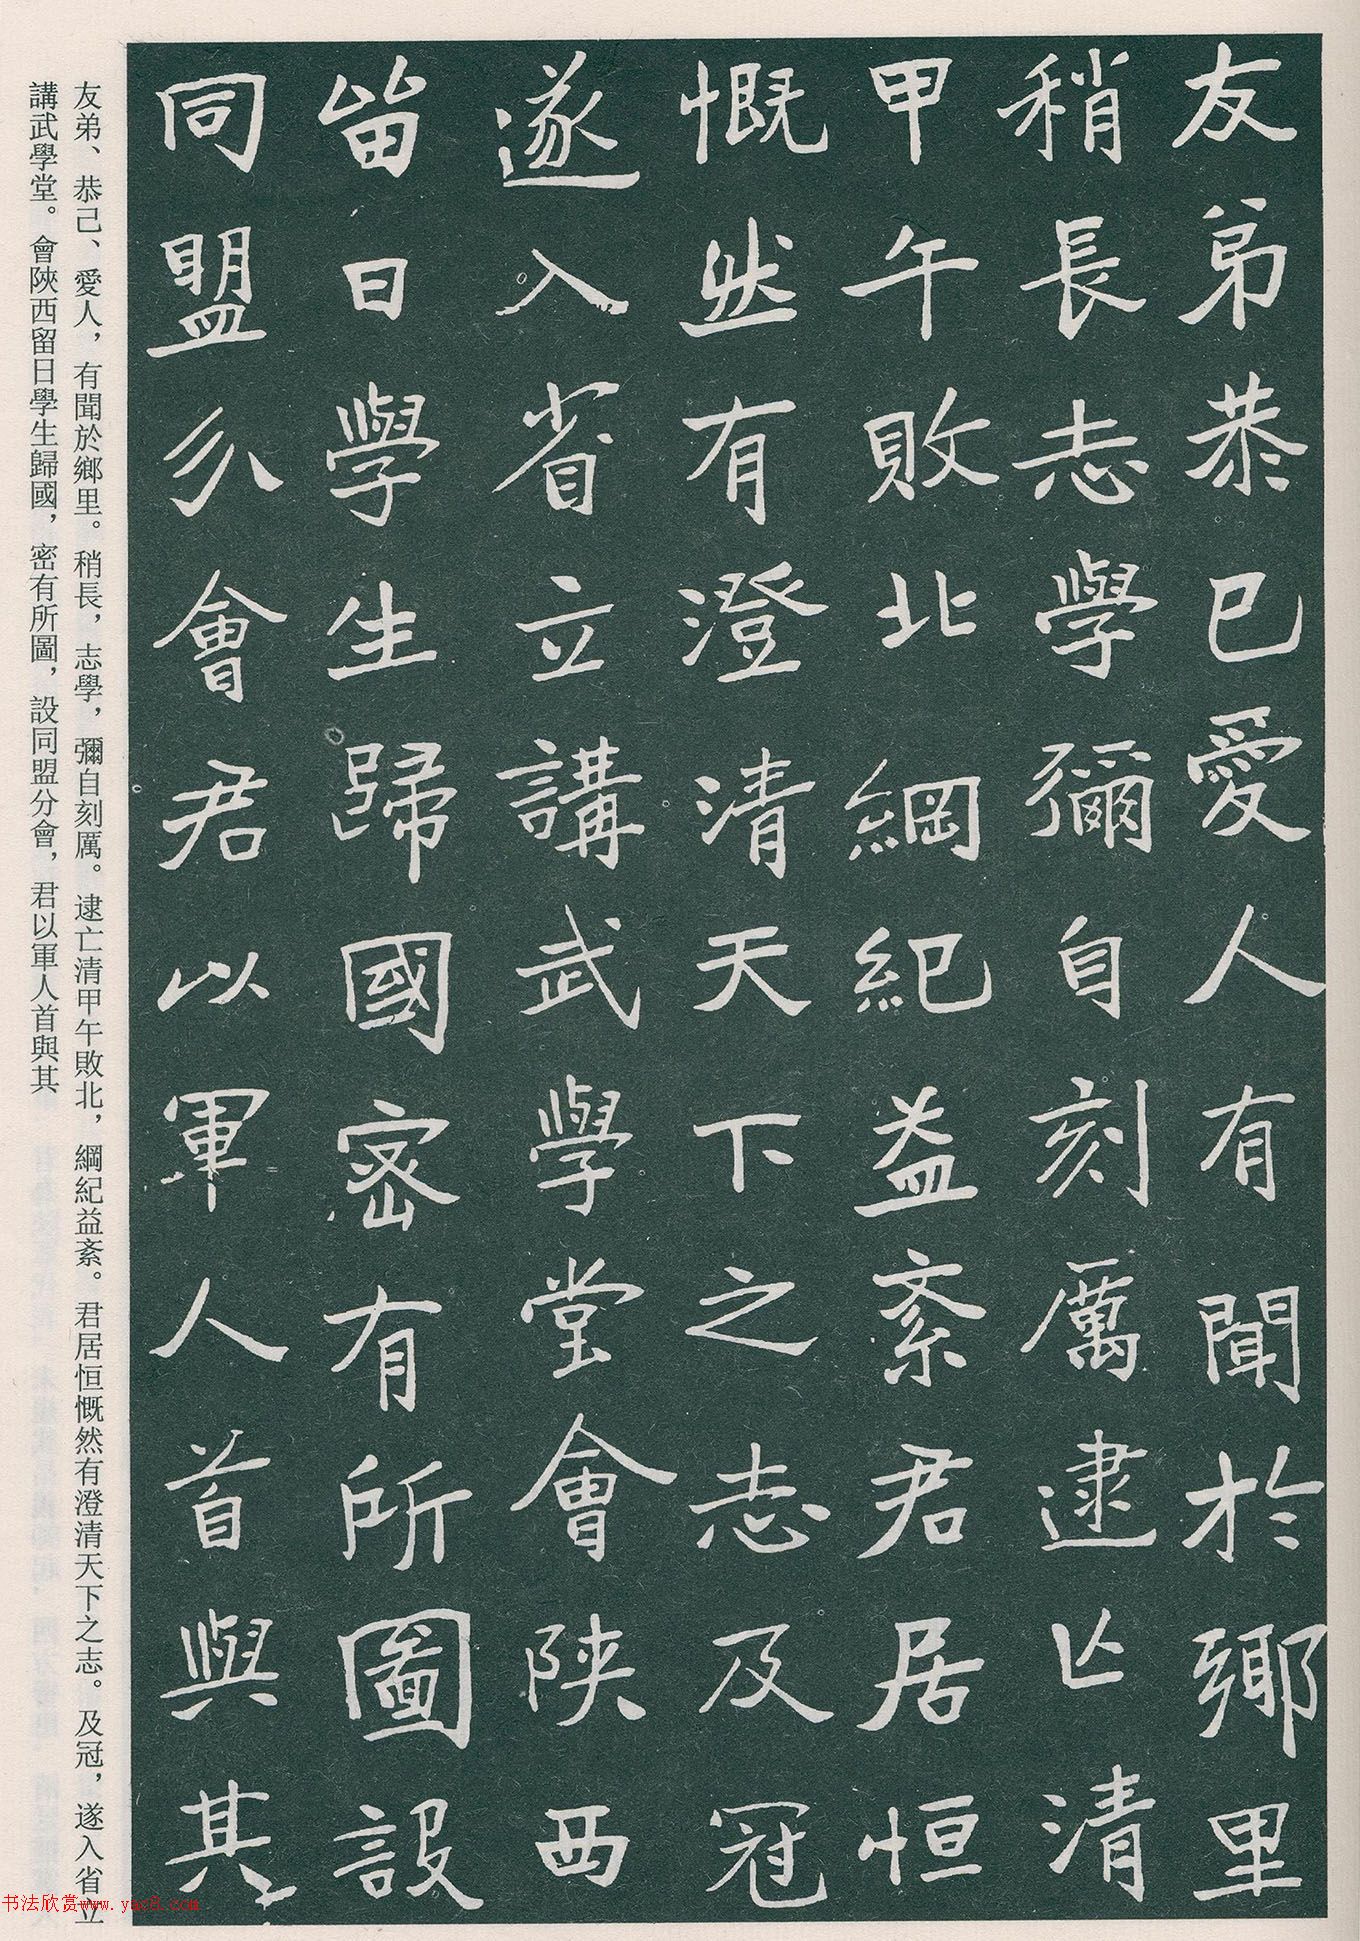 友弟恭己愛人有聞於鄉里
稍長志學彌自刻厲逮亡清
甲午敗北綱紀益紊君居恒
慨然有澄清天下之志及冠
遂入省立講武學堂會陝西
留日學生歸國密有所圖設
同盟分會君以軍人首與其
友弟、恭己、愛人，有聞於鄉里。稍長，志學，彌自刻厲。逮亡清甲午敗北，綱紀益紊。君居恒慨然有澄清天下之志。及冠，遂入省立
講武學堂。會陝西留日學生歸國，密有所圖，設同盟分會，君以軍人首與其
书法欣赏www.yac8.com